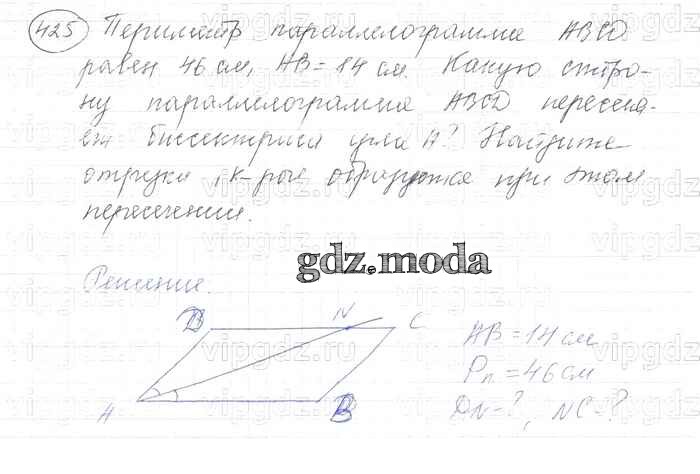 425 Периметр параллелограмма ABCD
равен 46 см, AB = 14 см. Какую сторо-
ну параллелограмма ABCD пересека-
ет биссектриса угла A? Найдите
отрезки, к-рые образуются при этом
пересечении.
gdz.moda
Решение.
D N C
A B
AB = 14 см
Pп = 46 см
DN - ?, NC - ?